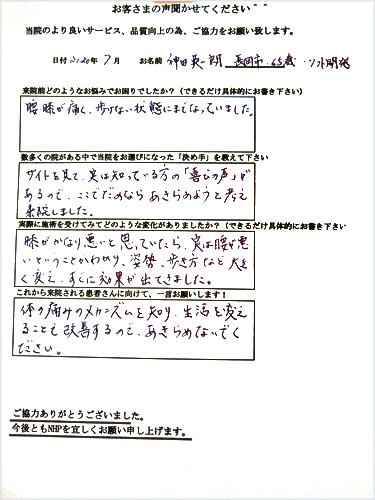 お客さまの声聞かせてください＾＾
当院のより良いサービス、品質向上の為、ご協力をお願い致します。
日付 2020年 7月 お名前 神田英一朗 長岡市 65歳
来院前どのようなお悩みでお困りでしたか？（できるだけ具体的にお書き下さい）
腰膝が痛く、歩けない状態にまでなっていました。
数多くの院がある中で当院をお選びになった「決め手」を教えて下さい
サイトを見て、実は知っている方の「喜びの声」が
あるので、ここでだめなら あきらめようと考え
来院しました。
実際に施術を受けてみてどのような変化がありましたか？（できるだけ具体的にお書き下さい
膝がかなり悪いと思っていたら、実は腰が悪
いということがわかり、姿勢、歩き方など大き
く変え、すぐに効果が出てきました。
これから来院される患者さんに向けて、一言お願いします！
体の痛みのメカニズムを知り、生活を変え
ることで改善するので、あきらめないでく
ださい。
ご協力ありがとうございました。
今後ともNHPを宜しくお願い申し上げます。